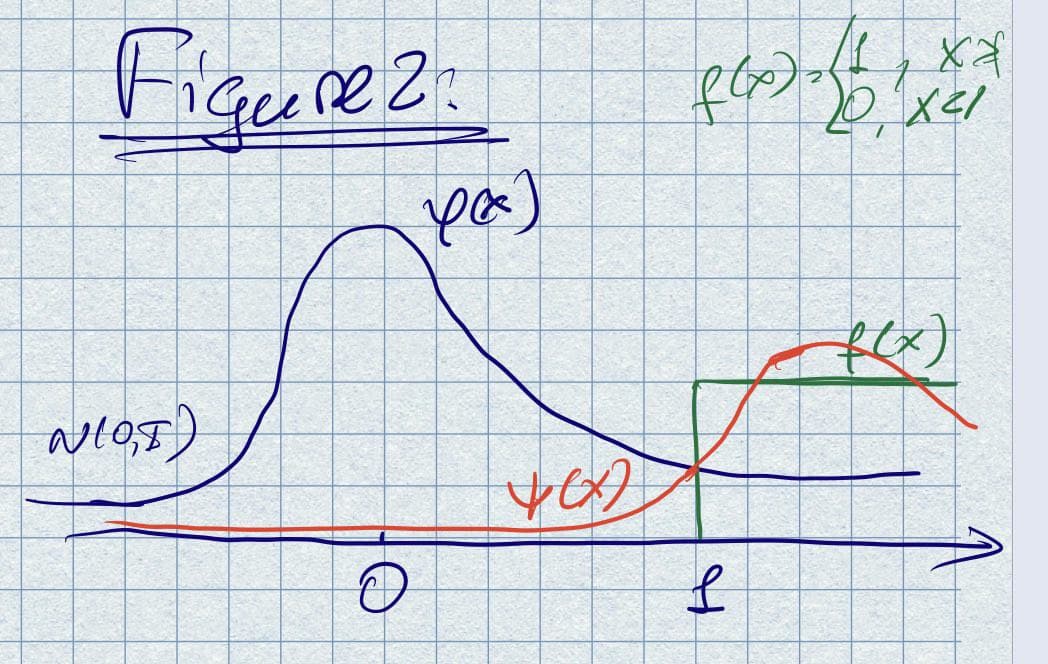 Figure 2:
f(x) = { 1 , x ≥
0 , x < 1
φ(x)
f(x)
N(0, I)
ψ(x)
0
1